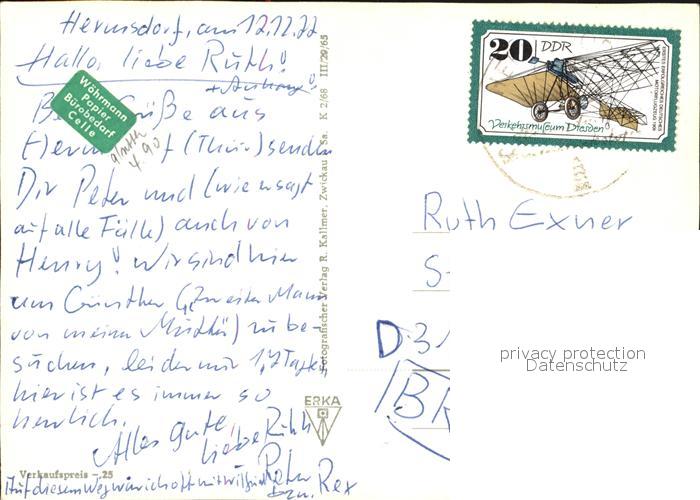 Hermsdorf, am 12.12.77
Hallo, liebe Ruth!
+ Anhang!
Grüße aus
(Thür) senden
Dir Peter und (wie gesagt
auf alle Fälle) auch von
Henry! Wir sind hier
um Günther ("Zweiter Mann
von meiner Mutter) zu be-
suchen, leider nur 1,2 Tage,
hier ist es immer so
herrlich.
Alles Gute,
liebe Ruth
Peter
bzw. Rex
Auf diesem Weg war ich oft mit
Wöhrmann
Papier
Bürobedarf
Celle
4.90
Verkaufspreis -.25
Fotografischer Verlag R. Kallmer, Zwickau Sa. K 2/68 III/29/65
ERKA
20 DDR
ERSTES ERFOLGREICHES DEUTSCHES
MOTORFLUGZEUG 1909
Verkehrsmuseum Dresden
Ruth Exner
S-
D-3
privacy protection
Datenschutz